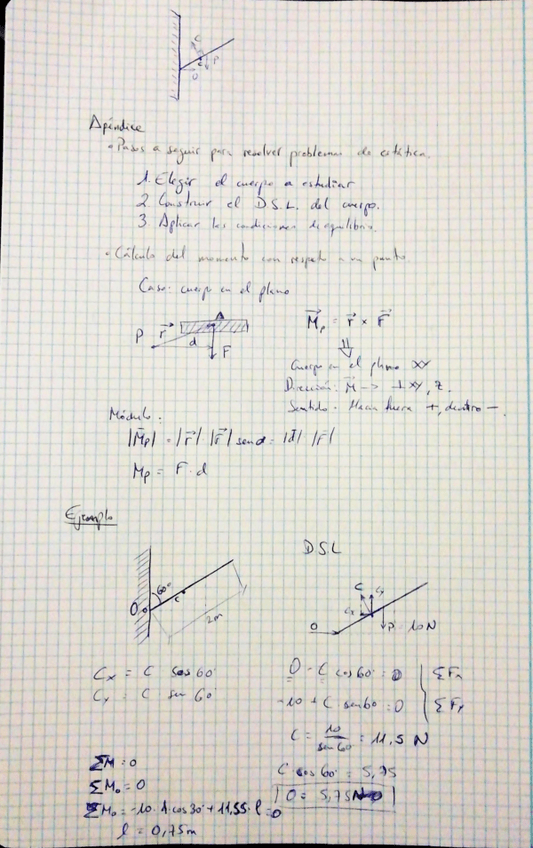 C
P
O
Apéndice
• Pasos a seguir para resolver problemas de estática.
1. Elegir el cuerpo a estudiar
2. Construir el D.S.L. del cuerpo.
3. Aplicar las condiciones de equilibrio.
• Cálculo del momento con respecto a un punto.
Caso: cuerpo en el plano
A
P r d F
M⃗p = r⃗ × F⃗
⇓
Cuerpo en el plano XY
Dirección: M⃗ -> ⊥ XY, Z.
Sentido: Hacia fuera +, dentro -.
Módulo:
|M⃗p| = |r⃗| |F⃗| senα = |d⃗| |F⃗|
Mp = F · d
Ejemplo
DSL
O 60° C 2m
C Cy Cx O P = 10N
Cx = C cos 60°
Cy = C sen 60°
O - C cos 60° = 0 ΣFx
-10 + C sen 60° = 0 ΣFy
C = 10/sen 60 = 11,5 N
C cos 60° = 5,75
O = 5,75N
ΣM = 0
ΣMo = 0
ΣMo = -10 · 1 · cos 30° + 11,55 · l = 0
l = 0,75m